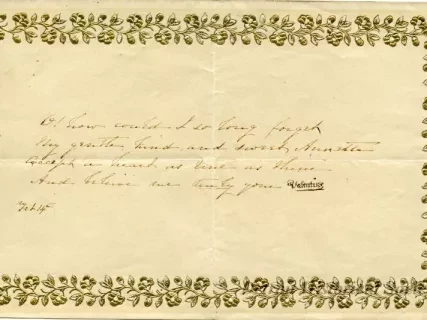 O! how could I so long forget
My gentle, kind and sweet Annette
Accept a heart as true as thine
And believe me truly your Valentine
Feb 14